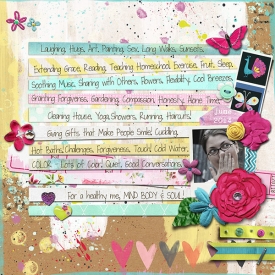 Laughing, Hugs, Art, Painting, Sex, Long Walks, Sunsets,
Extending Grace, Reading, Teaching Homeschool, Exercise, Fruit, Sleep,
Soothing Music, Sharing with Others, Flowers, Flexibility, Cool Breezes,
Granting Forgiveness, Gardening, Compassion, Honesty, Alone Time,
Cleaning House, Yoga, Showers, Running, Haircuts!
Giving Gifts that Make People Smile, Cuddling,
Hot Baths, Challenges, Forgiveness, Touch! Cold Water,
COLOR - Lots of Color, Quiet, Good Conversations,
For a healthy me, MIND BODY & SOUL!